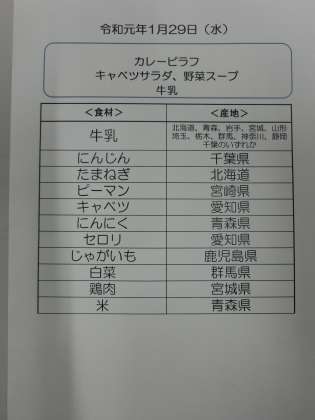 令和元年1月29日（水）
カレーピラフ
キャベツサラダ、野菜スープ
牛乳
＜食材＞ ＜産地＞
牛乳 北海道、青森、岩手、宮城、山形
埼玉、栃木、群馬、神奈川、静岡
千葉のいずれか
にんじん 千葉県
たまねぎ 北海道
ピーマン 宮崎県
キャベツ 愛知県
にんにく 青森県
セロリ 愛知県
じゃがいも 鹿児島県
白菜 群馬県
鶏肉 宮城県
米 青森県